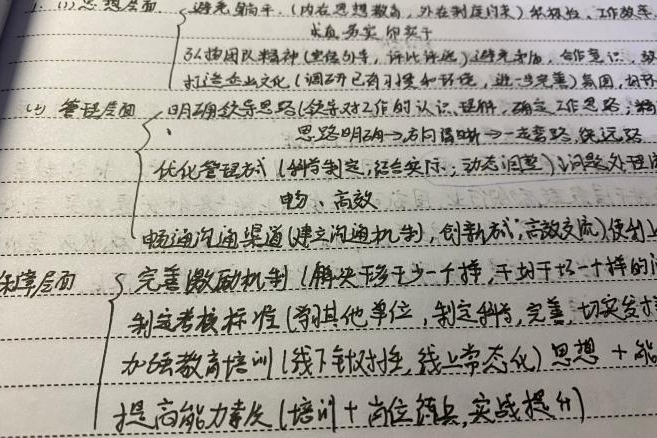 1. (1) 思想层面 避免躺平.(内在思想教育,外在制度约束)积极性、工作效率
求真务实 即实干
弘扬团队精神(宣传引导,评比评选)避免矛盾,合作意识
打造企业文化(调研已有习惯和环境,进一步完善)氛围,
(2) 管理层面 明确领导思路(领导对工作的认识、理解,确定工作思路;
思路明确→方向清晰→一走套路,绕远路
优化管理方式(科学制定,结合实际,动态调整)问题处理
畅、高效
畅通沟通渠道(建立沟通机制,创新方式,高效交流)
保障层面 完善激励机制(解决干多干少一个样,干好干坏一个样的
制定考核标准(学习其他单位,制定科学,完善,切实
加强教育培训(线下针对性,线上常态化)思想+能
提高能力素质(培训+岗位练兵,实战提升)